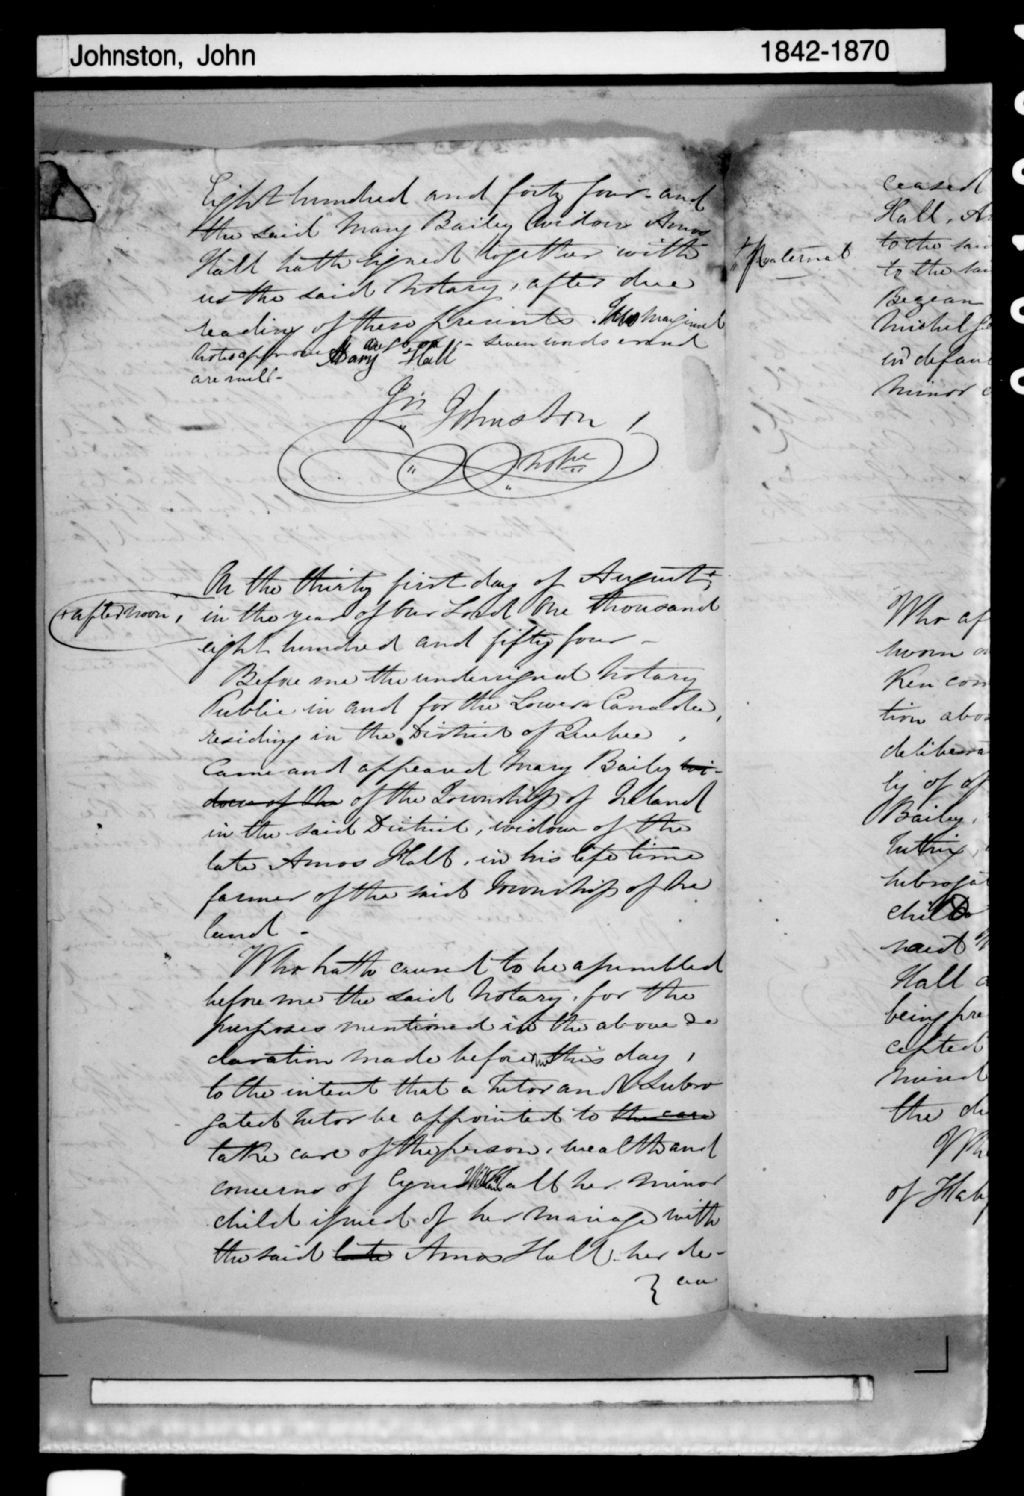 Johnston, John 1842-1870
Eight hundred and forty four - and
the said Mary Bailey widow Amos
Hall hath signed together with
us the said Notary, after due
reading of these presents. Two marginal
notes approved - seven words erased
are null -
Mary Hall
Jn Johnston,
Not. Pu
On the thirty first day of August +
+ afternoon,
in the year of Our Lord One thousand
eight hundred and fifty four -
Before me the undersigned Notary
Public in and for the Lower Canada,
residing in the District of Quebec,
Came and appeared Mary Bailey wi-
dow of the of the Township of Ireland
in the said District, widow of the
late Amos Hall, in his life time
farmer of the said Township of Ire
land -
Who hath caused to be assembled
before me the said Notary, for the
purposes mentioned in the above de
claration made before me this day,
to the intent that a Tutor and Subro
gated tutor be appointed to the care
take care of the person, wealth and
concerns of Cyrus Hall her minor
child issued of her mariage with
the said late Amos Hall - her de-
} cea
+ Paternal
ceased
Hall, A
to the sai
to the sai
Begean
Michel
in defau
minor
Who af
sworn
ken con
tion abo
delibera
ly of
Bailey,
Tutrix,
subrogat
child
said
Hall
being pre
cepted
mised
the
Wh
of Ha